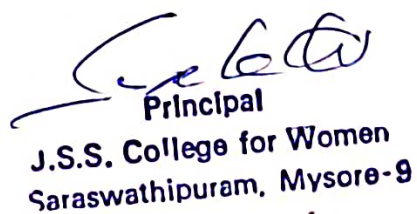 Principal
J.S.S. College for Women
Saraswathipuram, Mysore-9